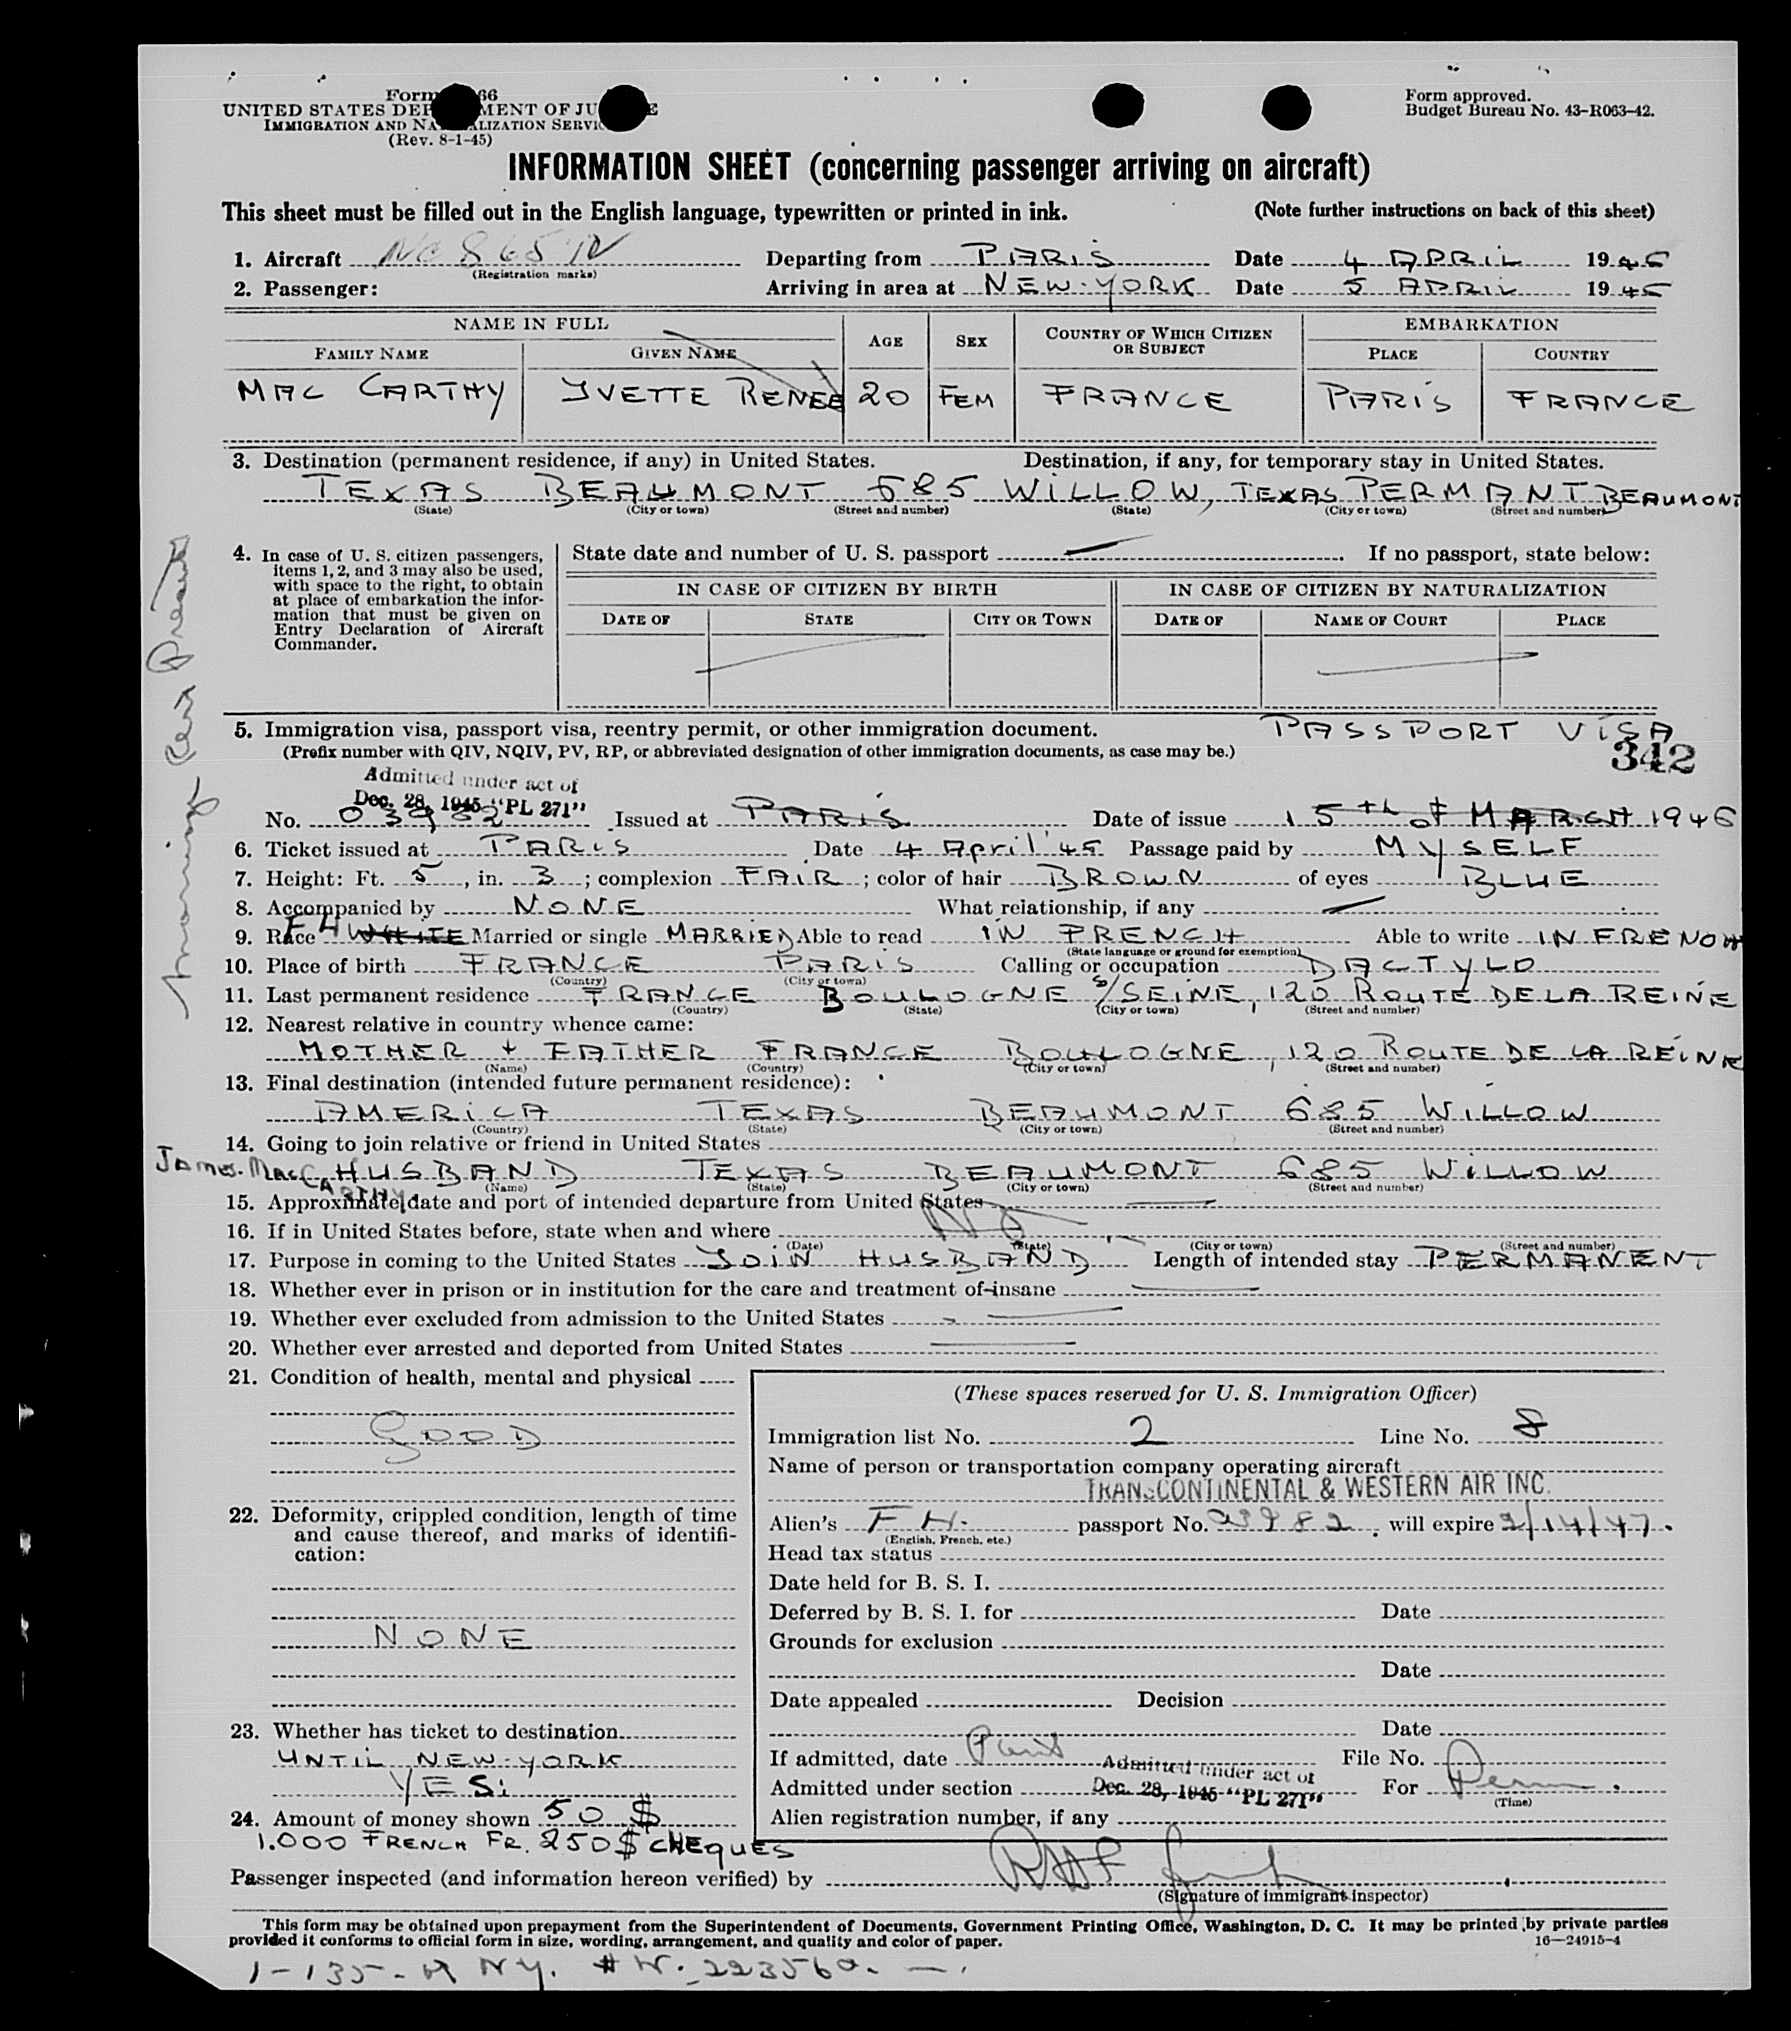 Form 66
UNITED STATES DEP MENT OF JU E
IMMIGRATION AND NA LIZATION SERVIC
(Rev. 8-1-45)
Form approved.
Budget Bureau No. 43-R063-42.
INFORMATION SHEET (concerning passenger arriving on aircraft)
This sheet must be filled out in the English language, typewritten or printed in ink. (Note further instructions on back of this sheet)
1. Aircraft NC 86512 Departing from PARIS Date 4 APRIL 1946
(Registration marks)
2. Passenger: Arriving in area at NEW-YORK Date 5 APRIL 1946
NAME IN FULL AGE SEX COUNTRY OF WHICH CITIZEN OR SUBJECT EMBARKATION
FAMILY NAME GIVEN NAME PLACE COUNTRY
MAC CARTHY YVETTE RENEE 20 FEM FRANCE PARIS FRANCE
3. Destination (permanent residence, if any) in United States. Destination, if any, for temporary stay in United States.
TEXAS BEAUMONT 685 WILLOW, TEXAS PERMANT BEAUMONT
(State) (City or town) (Street and number) (State) (City or town) (Street and number)
4. In case of U. S. citizen passengers, items 1, 2, and 3 may also be used, with space to the right, to obtain at place of embarkation the information that must be given on Entry Declaration of Aircraft Commander.
State date and number of U. S. passport If no passport, state below:
IN CASE OF CITIZEN BY BIRTH IN CASE OF CITIZEN BY NATURALIZATION
DATE OF STATE CITY OR TOWN DATE OF NAME OF COURT PLACE
5. Immigration visa, passport visa, reentry permit, or other immigration document. PASSPORT VISA
(Prefix number with QIV, NQIV, PV, RP, or abbreviated designation of other immigration documents, as case may be.) 342
Admitted under act of
Dec. 28, 1945 "PL 271"
No. 03982 Issued at PARIS Date of issue 15th of MARCH 1946
6. Ticket issued at PARIS Date 4 April 46 Passage paid by MYSELF
7. Height: Ft. 5, in. 3; complexion FAIR; color of hair BROWN of eyes BLUE
8. Accompanied by NONE What relationship, if any
9. Race FH WHITE Married or single MARRIED Able to read IN FRENCH Able to write IN FRENCH
(State language or ground for exemption)
10. Place of birth FRANCE PARIS Calling or occupation DACTYLO
(Country) (City or town)
11. Last permanent residence FRANCE BOULOGNE S/SEINE, 120 ROUTE DE LA REINE
(Country) (State) (City or town) (Street and number)
12. Nearest relative in country whence came:
MOTHER + FATHER FRANCE BOULOGNE, 120 ROUTE DE LA REINE
(Name) (Country) (City or town) (Street and number)
13. Final destination (intended future permanent residence):
AMERICA TEXAS BEAUMONT 685 WILLOW
(Country) (State) (City or town) (Street and number)
14. Going to join relative or friend in United States
James MacCARTHY HUSBAND TEXAS BEAUMONT 685 WILLOW
(Name) (State) (City or town) (Street and number)
15. Approximate date and port of intended departure from United States
16. If in United States before, state when and where NO
(Date) (State) (City or town) (Street and number)
17. Purpose in coming to the United States JOIN HUSBAND Length of intended stay PERMANENT
18. Whether ever in prison or in institution for the care and treatment of insane
19. Whether ever excluded from admission to the United States
20. Whether ever arrested and deported from United States
21. Condition of health, mental and physical
GOOD
22. Deformity, crippled condition, length of time and cause thereof, and marks of identification:
NONE
23. Whether has ticket to destination
UNTIL NEW-YORK
YES:
24. Amount of money shown 50 $
1.000 FRENCH FR. 250 $ CHEQUES
(These spaces reserved for U. S. Immigration Officer)
Immigration list No. 2 Line No. 8
Name of person or transportation company operating aircraft
TRANSCONTINENTAL & WESTERN AIR INC.
Alien's FH. passport No. 03982, will expire 2/14/47.
(English, French, etc.)
Head tax status
Date held for B. S. I.
Deferred by B. S. I. for Date
Grounds for exclusion
Date
Date appealed Decision
Date
If admitted, date File No.
Admitted under act of
Admitted under section Dec. 28, 1945 "PL 271" For Perm.
(Time)
Alien registration number, if any
Passenger inspected (and information hereon verified) by
(Signature of immigrant inspector)
This form may be obtained upon prepayment from the Superintendent of Documents, Government Printing Office, Washington, D. C. It may be printed by private parties
provided it conforms to official form in size, wording, arrangement, and quality and color of paper. 16—24915-4